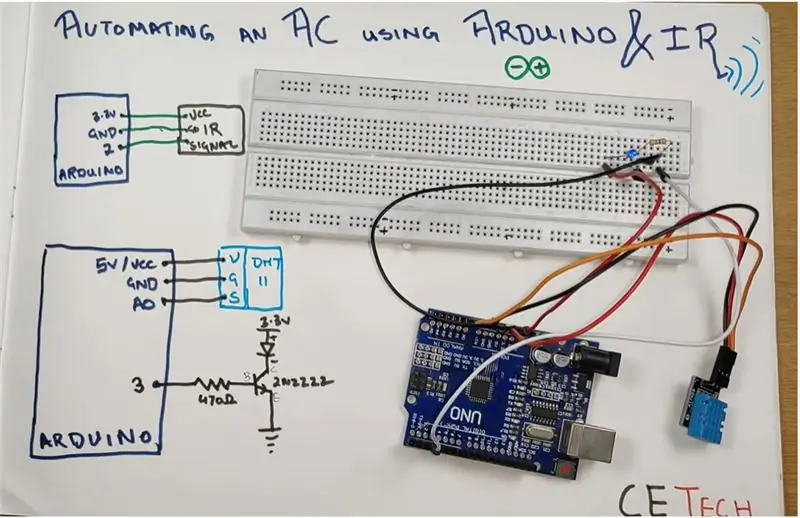 AUTOMATING AN AC USING ARDUINO & IR
3.3V
GND
2
ARDUINO
VCC
GD IR
SIGNAL
5V/VCC
GND
A0
3
ARDUINO
V
G
S
DHT
11
3.3V
470Ω
B
C
E
2N2222
UNO
CETECH